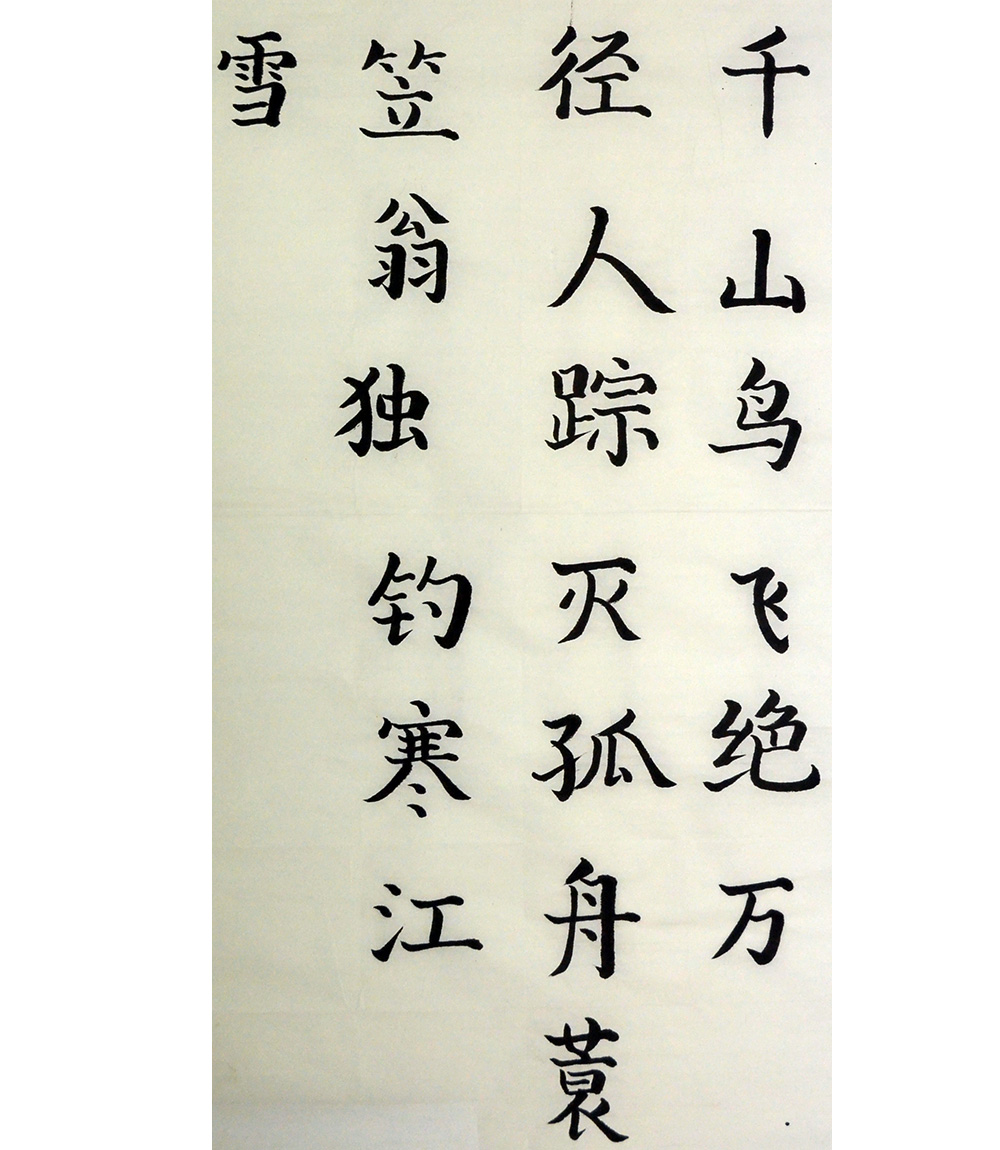 千山鸟飞绝万
径人踪灭孤舟蓑
笠翁独钓寒江
雪